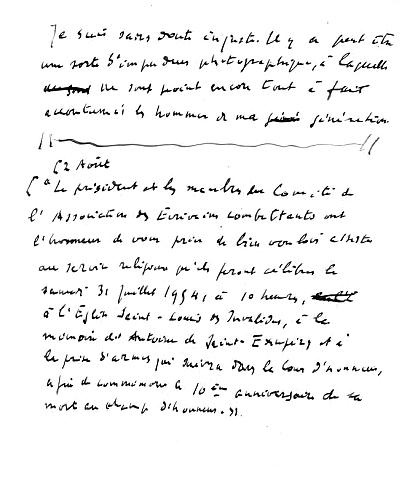 Je suis sans doute injuste. Il y a peut être
une sorte d'impudeur photographique, à laquelle
ne sont point encore tout à fait
accoutumés les hommes de ma génération.
2 Août
"Le président et les membres du Comité de
l'Association des Écrivains combattants ont
l'honneur de vous prier de bien vouloir assister
au service religieux qu'ils feront célébrer le
samedi 31 juillet 1954, à 10 heures,
à l'Église Saint-Louis des Invalides, à la
mémoire de Antoine de Saint-Exupéry et à
la prise d'armes qui suivra dans la Cour d'honneur,
afin de commémorer le 10ème anniversaire de sa
mort au champ d'honneur."